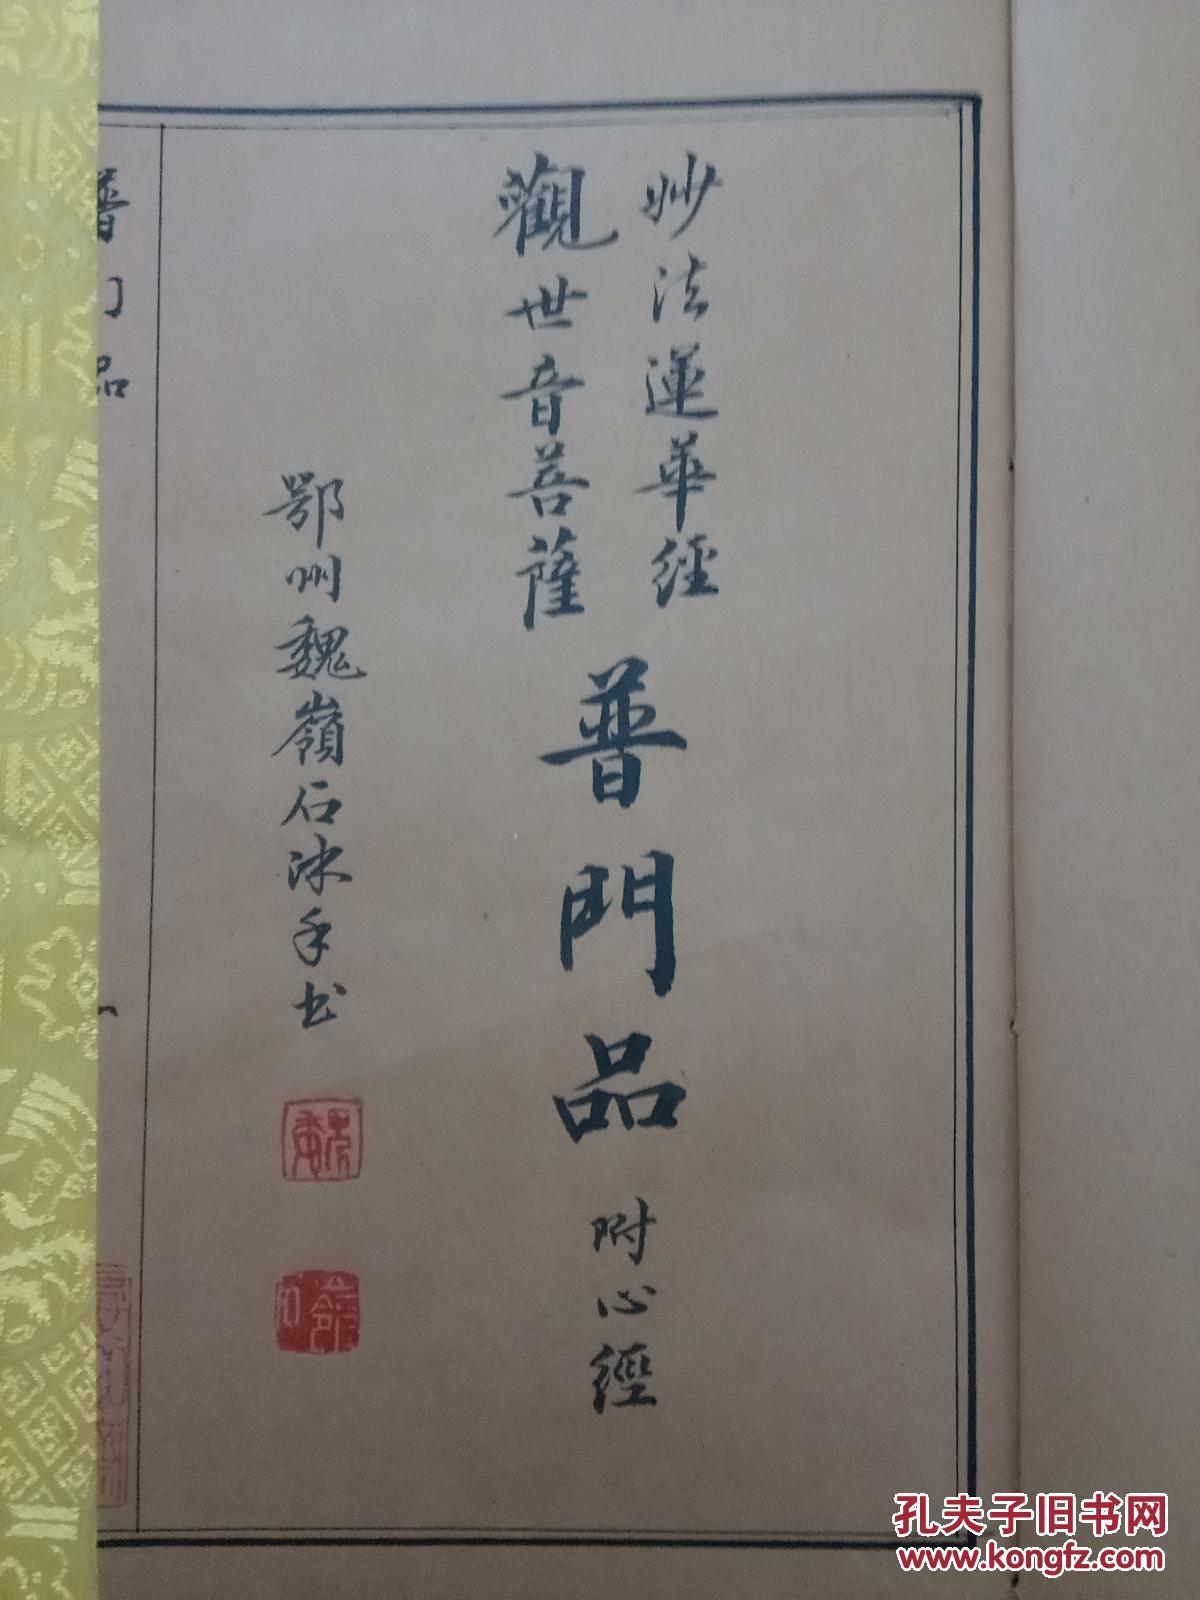 妙法蓮華經
觀世音菩薩
普門品
附心經
鄂州魏嶺石沐手书
普门品
孔夫子旧书网
www.kongfz.com